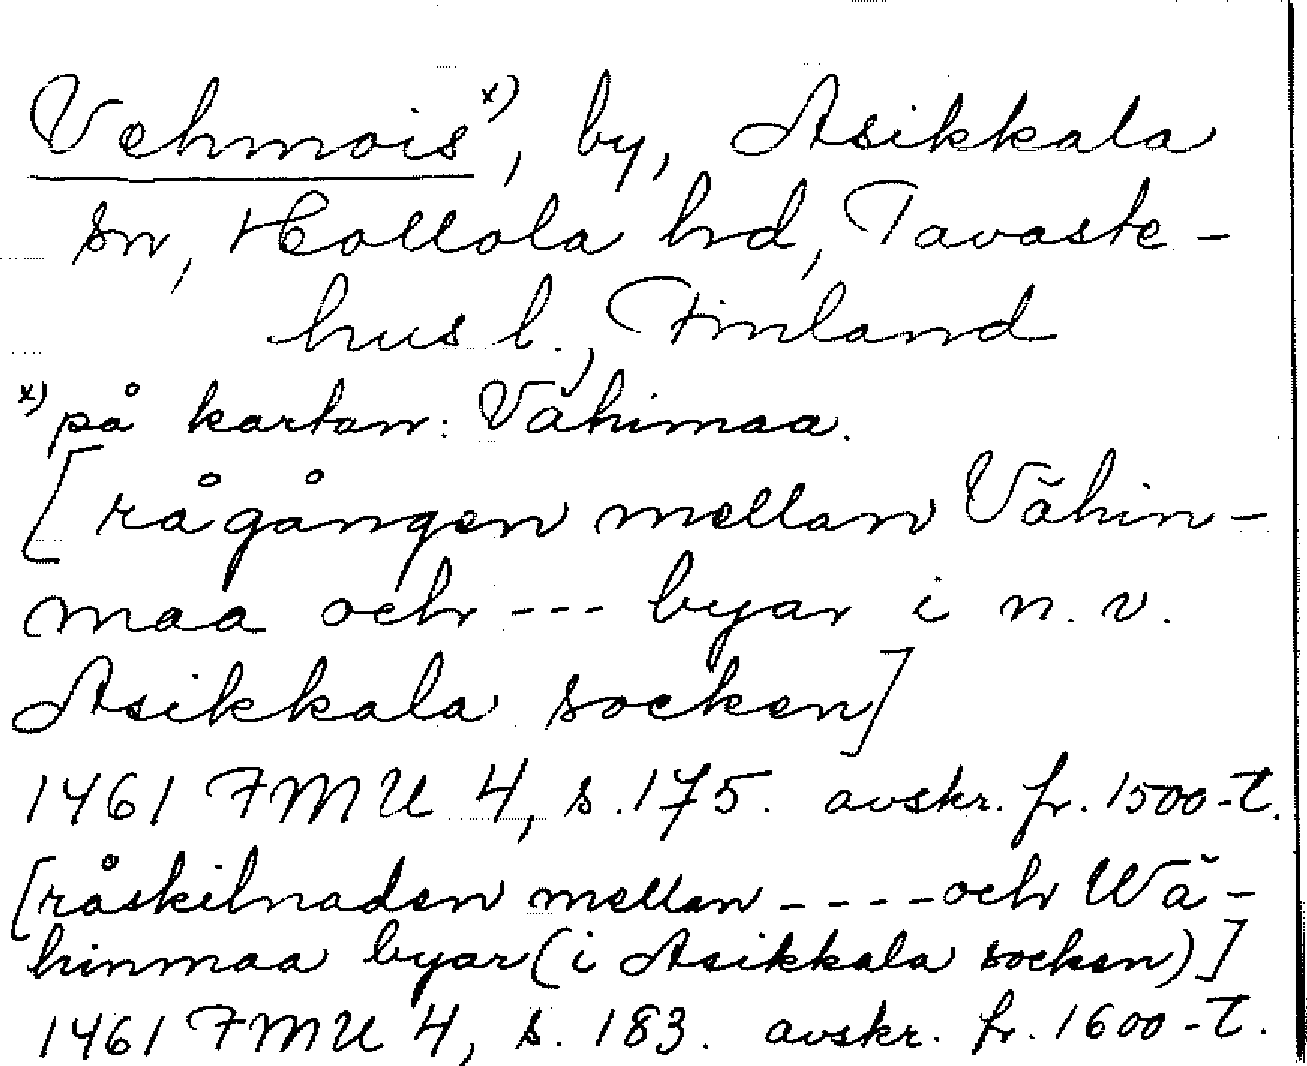 Vehmois x), by, Asikkala
sn, Hollola hrd, Tavaste-
hus l., Finland
x) på kartan: Vähimaa.
[rågången mellan Vähin-
maa och --- byar i n. v.
Asikkala socken]
1461 FMU 4, s. 175. avskr. fr. 1500-t.
[råskilnaden mellan ---- och Wä-
hinmaa byar (i Asikkala socken)]
1461 FMU 4, s. 183. avskr. fr. 1600-t.